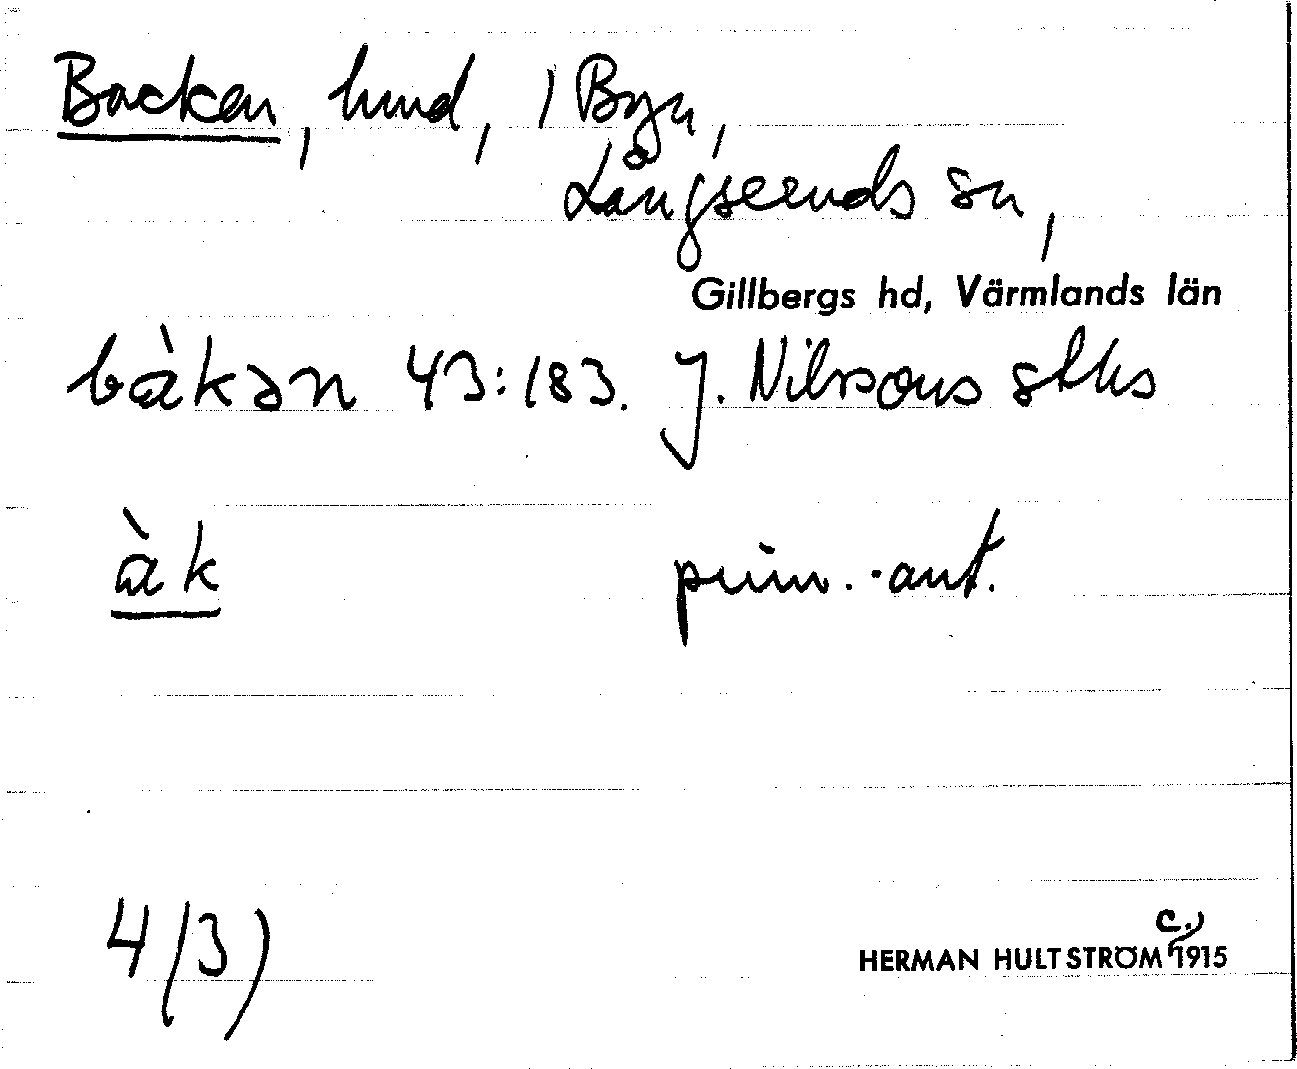 Backen, hmd, 1 Byn,
Långseruds sn,
Gillbergs hd, Värmlands län
bàkən 43:183. J. Nilssons stks
àk prim.-ant.
4/3)
c.)
HERMAN HULTSTRÖM 1915